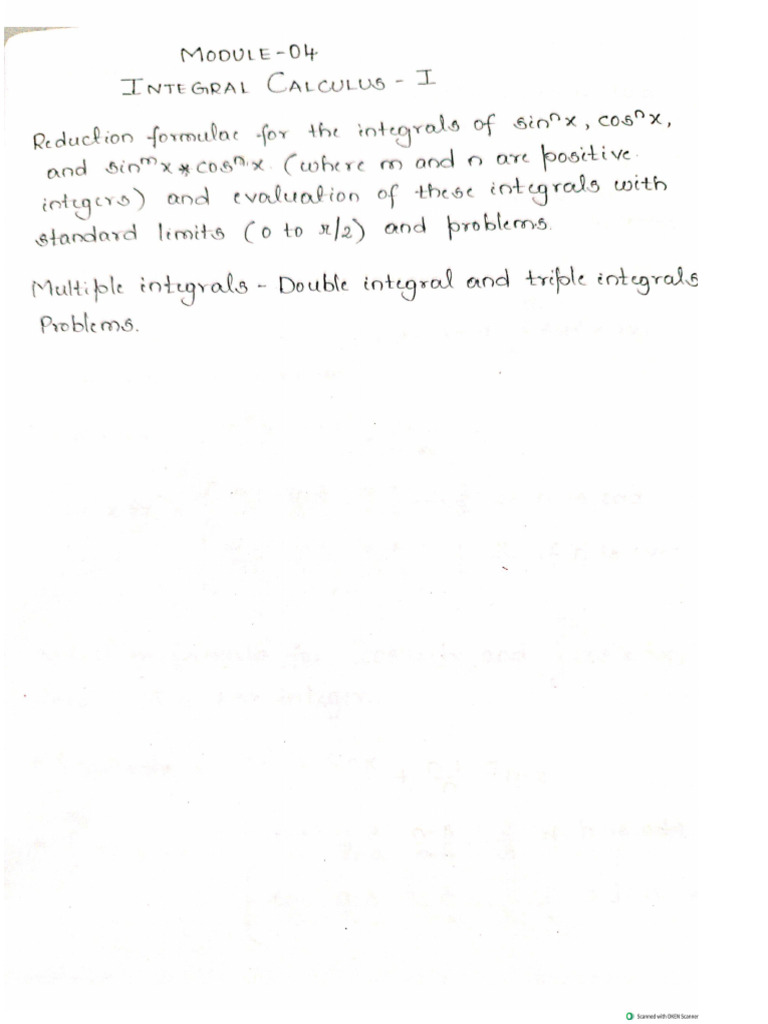 MODULE-04
INTEGRAL CALCULUS - I
Reduction formulae for the integrals of sinⁿx, cosⁿx,
and sinᵐx * cosⁿx (where m and n are positive
integers) and evaluation of these integrals with
standard limits (0 to π/2) and problems.
Multiple integrals - Double integral and triple integrals
Problems.
Scanned with OKEN Scanner